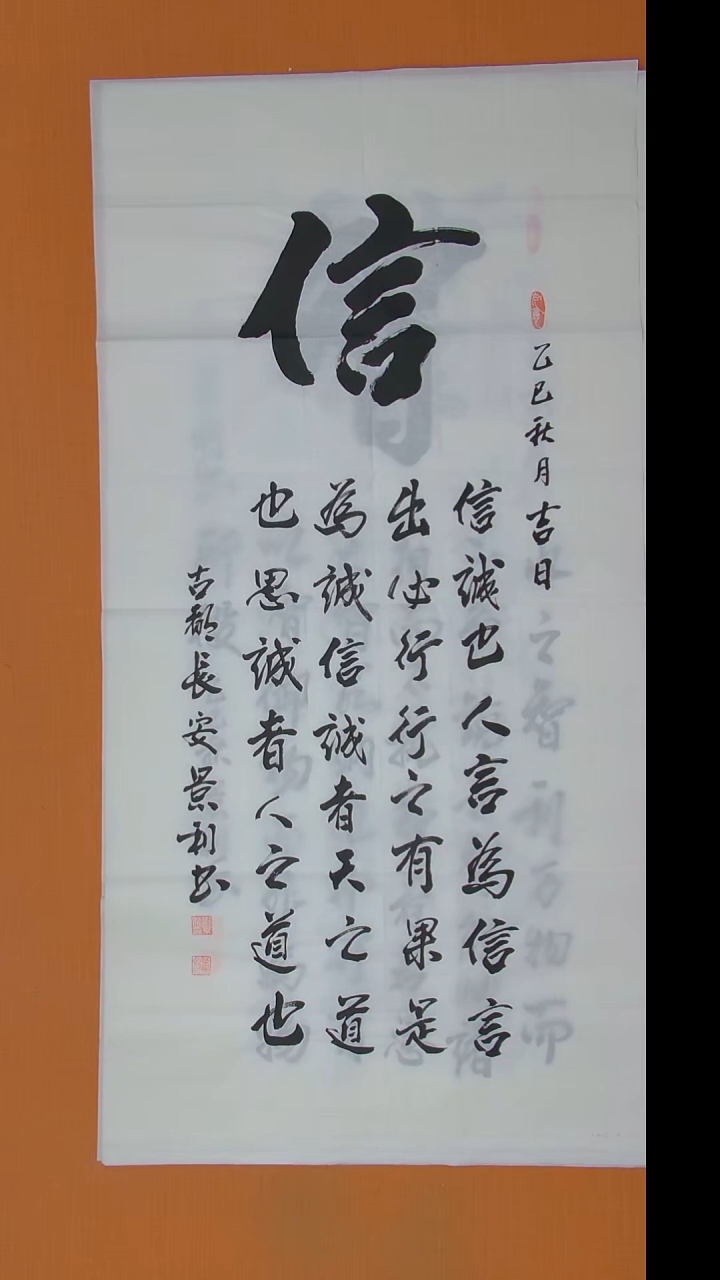 信
乙巳秋月吉日
信誠也人言為信言
出必行行之有果是
為誠信誠者天之道
也思誠者人之道也
古都長安景利書